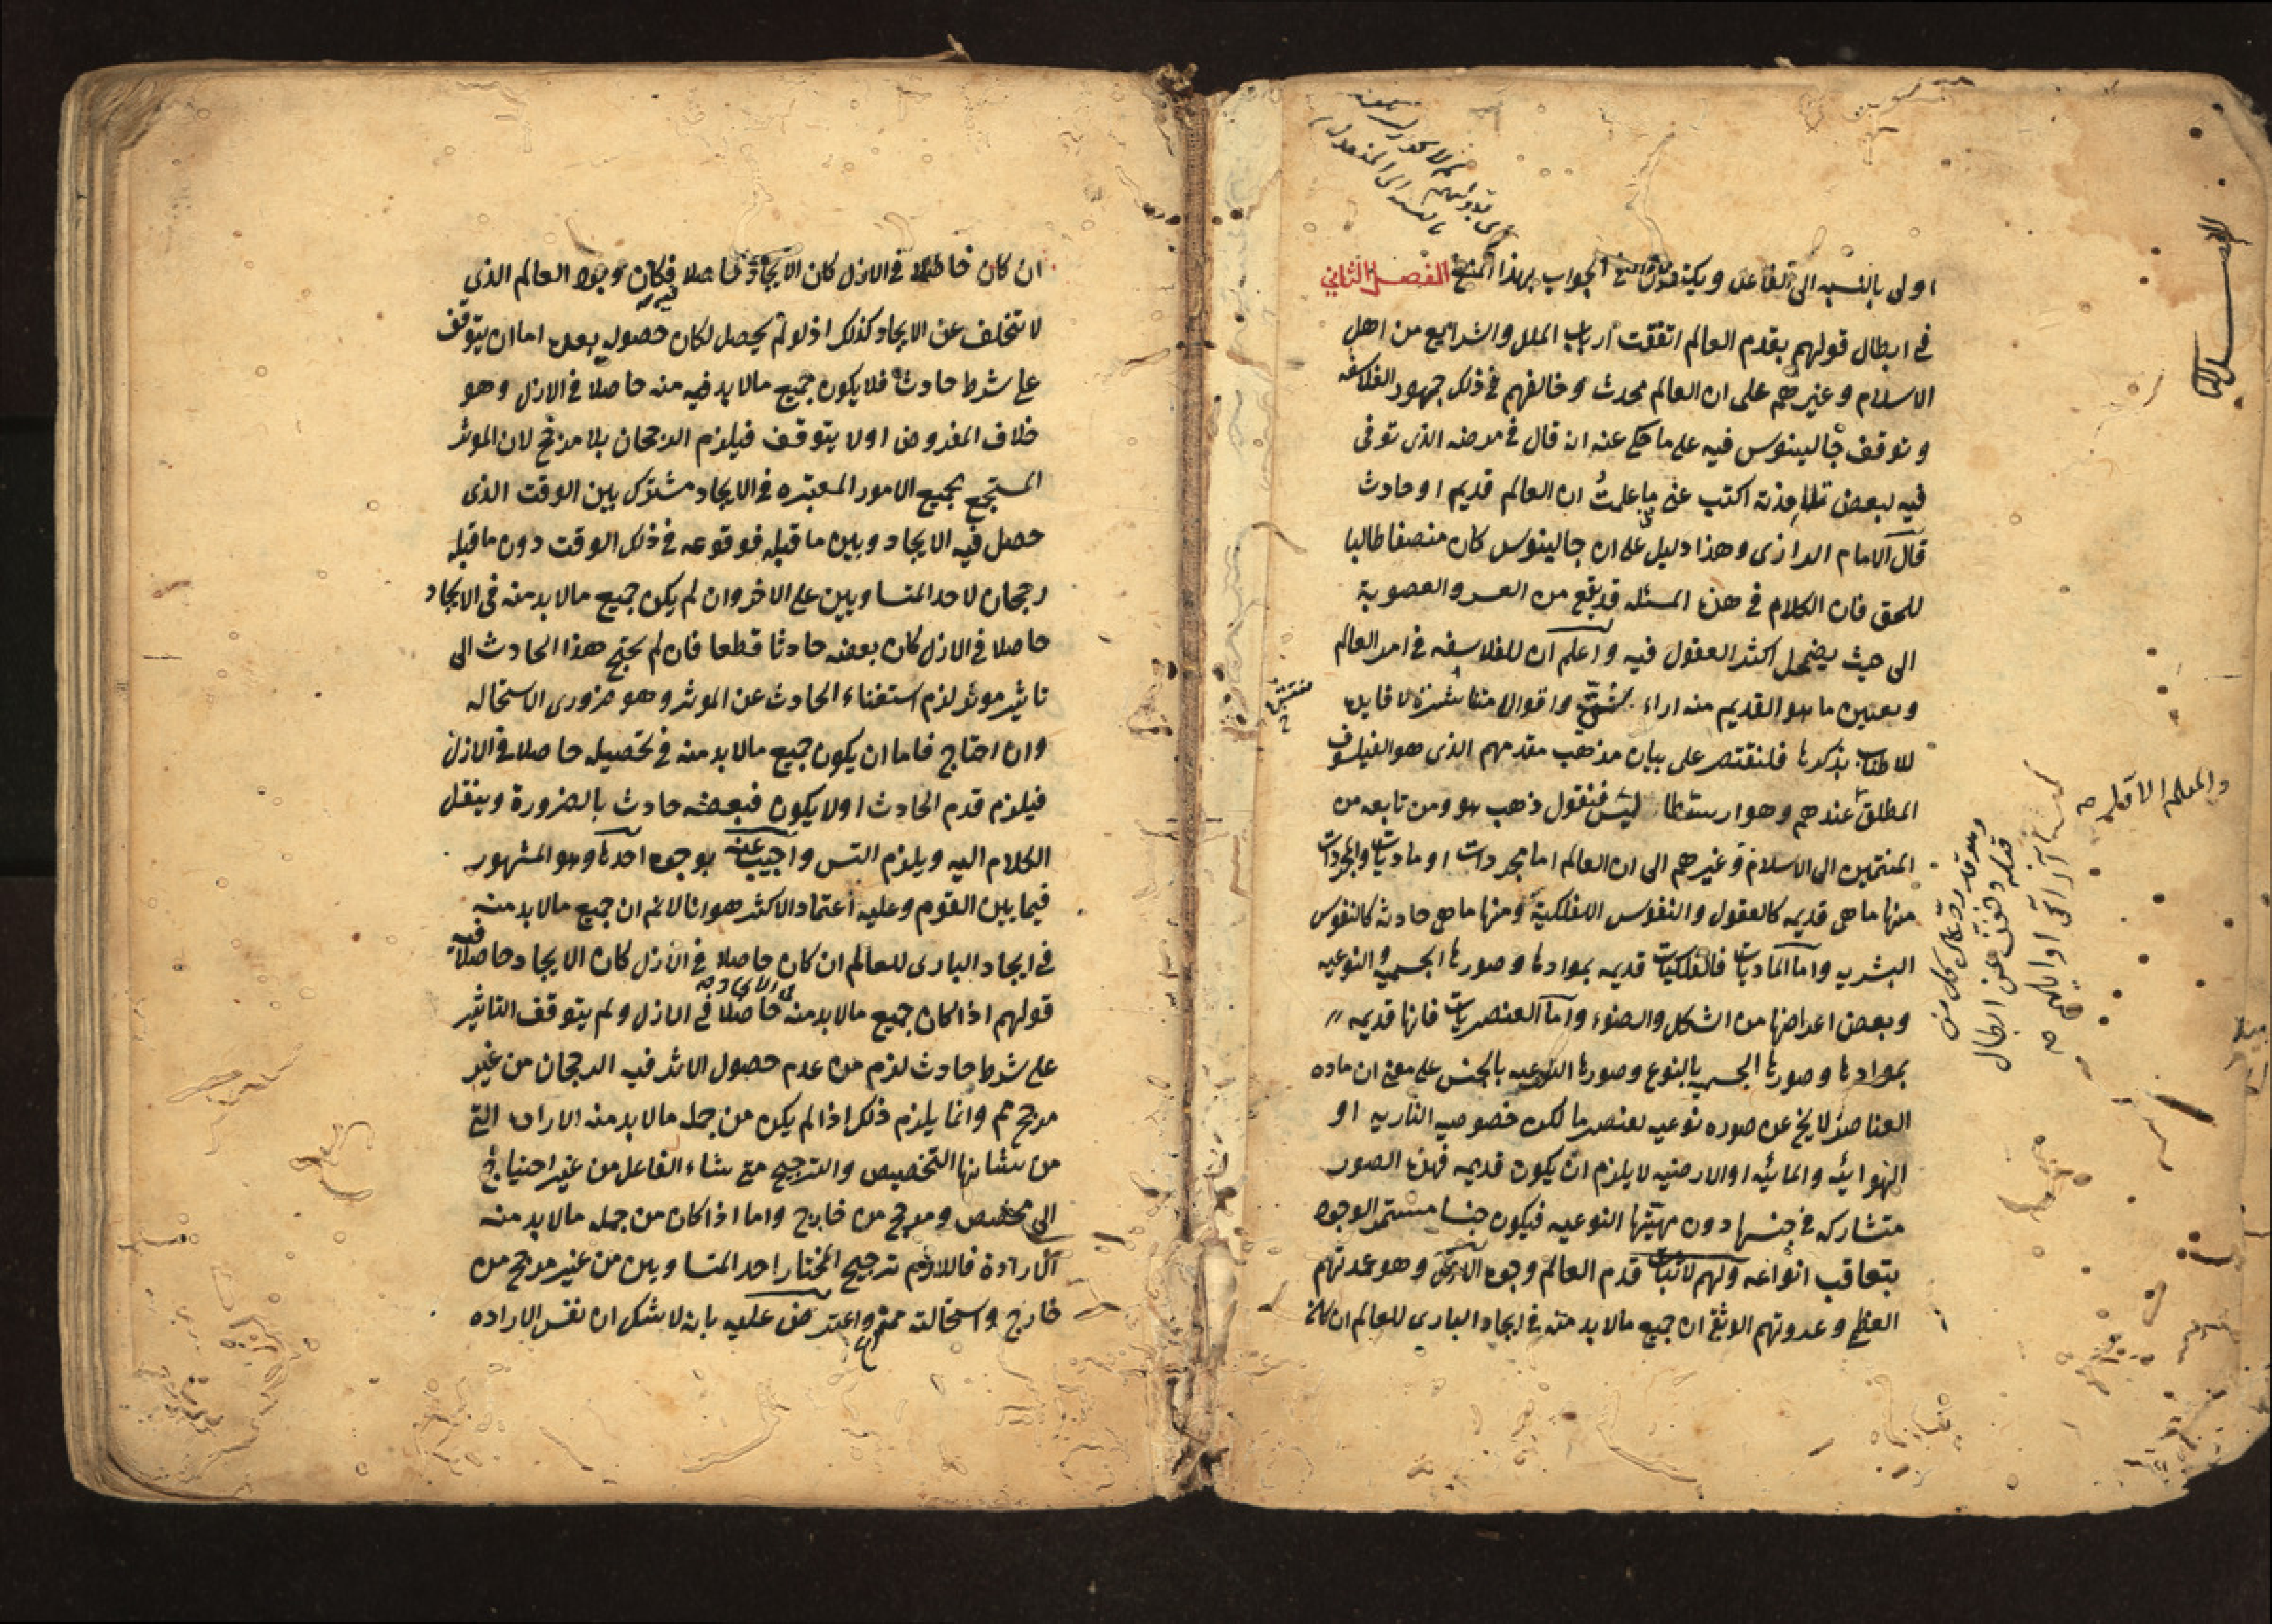 اولى بالنسبه الى الفاعل ويكن في الجواب بهذا المنع الفصل الثاني
في ابطال قولهم بقدم العالم اتفقت ارباب الملل والشرايع من اهل
الاسلام وغيرهم على ان العالم محدث وخالفهم في ذلك جمهور الفلاسفه
وتوقف جالينوس فيه على ما حكى عنه انه قال في مرضه الذى توفى
فيه لبعض تلامذته اكتب عنى ما علمت ان العالم قديم او حادث
قال الامام الرازى وهذا دليل على ان جالينوس كان منصفا طالبا
للحق فان الكلام في هذه المسئله قد يقع من العسر والصعوبة
الى حيث يضمحل اكثر العقول فيه واعلم ان للفلاسفه في امر العالم
وتعيين ما هو القديم منه اراء شتى واقوالا منتشرة لا فايده
للاطناب بذكرها فلنقتصر على بيان مذهب مقدمهم الذى هو الفيلسوف
المطلق عندهم وهو ارسطاطاليس فنقول ذهب هو ومن تابعه من
المنتمين الى الاسلام وغيرهم الى ان العالم اما مجردات او ماديات والمجردات
منها ما هى قديمه كالعقول والنفوس الفلكية ومنها ما هى حادثه كالنفوس
البشريه واما الماديات فالفلكيات قديمه بموادها وصورها الجسميه والنوعيه
وبعض اعراضها من الشكل والضوء واما العنصريات فانها قديمه
بموادها وصورها الجسميه بالنوع وصورها النوعيه بالجنس على معنى ان ماده
العناصر لا يخ عن صوره نوعيه لعنصر ما لكن خصوصيه الناريه او
الهوائيه والمائيه او الارضيه لا يلزم ان يكون قديمه فهذه الصور
متشاركه في جنسها دون مهيتها النوعيه فيكون جنسا مستمر الوجود
بتعاقب انواعه ولهم لاثبات قدم العالم وجوه الاول وهو عمدتهم
العظمى وعروتهم الوثقى ان جميع مالابد منه في ايجاد البارى للعالم ان كان
والمعلم الاول
ان كان حاصلا في الازل كان الايجاد حاصلا فيه فكان وجود العالم الذى
لا تتخلف عن الايجاد كذلك اذ لو لم يحصل لكان حصوله بعده اما ان يتوقف
على شرط حادث فلا يكون جميع مالابد منه حاصلا في الازل وهو
خلاف المفروض اولا يتوقف فيلزم الرجحان بلا مرجح لان الموثر
المستجمع بجميع الامور المعتبره في الايجاد مشترك بين الوقت الذى
حصل فيه الايجاد وبين ما قبله فوقوعه في ذلك الوقت دون ما قبله
رجحان لاحد المتساويين على الاخر وان لم يكن جميع مالابد منه فى الايجاد
حاصلا في الازل كان بعضه حادثا قطعا فان لم يحتج هذا الحادث الى
تاثير موثر لزم استغناء الحادث عن الموثر وهو ضرورى الاستحاله
وان احتاج فاما ان يكون جميع مالابد منه في تحصيله حاصلا في الازل
فيلزم قدم الحادث اولا يكون فبعضه حادث بالضرورة وينقل
الكلام اليه ويلزم التس واجيب عنه بوجوه احدها وهو المشهور
فيما بين القوم وعليه اعتماد الاكثر هو انا لا نم ان جميع مالابد منه
في ايجاد البارى للعالم ان كان حاصلا في الازل كان الايجاد حاصلا فيه
قولهم اذا كان جميع مالابد منه في الايجاد حاصلا في الازل ولم يتوقف التاثير
على شرط حادث لزم من عدم حصول الاثر فيه الرجحان من غير
مرجح تم وانما يلزم ذلك اذا لم يكن من جمله مالابد منه الاراده التى
من شانها التخصيص والترجيح متى شاء الفاعل من غير احتياج
الى مخصص ومرجح من خارج واما اذا كان من جمله مالابد منه
الارادة فاللازم ترجيح المختار احد المتساويين من غير مرجح من
خارج واستحالته مم واعترض عليه بانه لا شك ان نفس الاراده